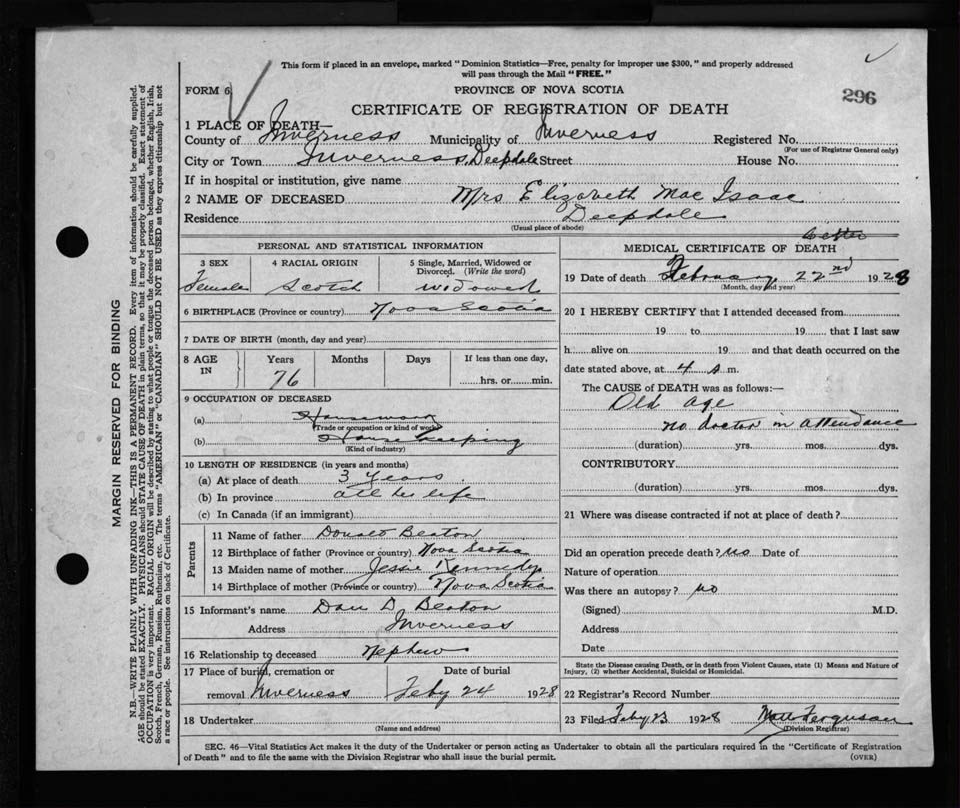 This form if placed in an envelope, marked "Dominion Statistics—Free, penalty for improper use $300," and properly addressed
will pass through the Mail "FREE."
FORM 6
PROVINCE OF NOVA SCOTIA
296
CERTIFICATE OF REGISTRATION OF DEATH
1 PLACE OF DEATH—
County of Inverness Municipality of Inverness Registered No.
(For use of Registrar General only)
City or Town Inverness, Deepdale Street House No.
If in hospital or institution, give name
2 NAME OF DECEASED Mrs Elizabeth Mac Isaac
Residence Deepdale
(Usual place of abode)
PERSONAL AND STATISTICAL INFORMATION
3 SEX 4 RACIAL ORIGIN 5 Single, Married, Widowed or Divorced. (Write the word)
Female Scotch Widowed
6 BIRTHPLACE (Province or country) Nova Scotia
7 DATE OF BIRTH (month, day and year)
8 AGE IN Years Months Days If less than one day,
76 hrs. or min.
9 OCCUPATION OF DECEASED
(a) Housework
(Trade or occupation or kind of work)
(b) House Keeping
(Kind of industry)
10 LENGTH OF RESIDENCE (in years and months)
(a) At place of death 3 years
(b) In province all her life
(c) In Canada (if an immigrant)
Parents
11 Name of father Donald Beaton
12 Birthplace of father (Province or country) Nova Scotia
13 Maiden name of mother Jessie Kennedy
14 Birthplace of mother (Province or country) Nova Scotia
15 Informant's name Dan D. Beaton
Address Inverness
16 Relationship to deceased Nephew
17 Place of burial, cremation or removal Inverness Date of burial Feby 24 1928
18 Undertaker
(Name and address)
MEDICAL CERTIFICATE OF DEATH
19 Date of death February 22nd 1928
(Month, day and year)
20 I HEREBY CERTIFY that I attended deceased from
19 to 19 that I last saw
h alive on 19 and that death occurred on the
date stated above, at 4 A m.
The CAUSE of DEATH was as follows:—
Old age
no doctor in attendance
(duration) yrs. mos. dys.
CONTRIBUTORY
(duration) yrs. mos. dys.
21 Where was disease contracted if not at place of death?
Did an operation precede death? no Date of
Nature of operation
Was there an autopsy? no
(Signed) M.D.
Address
Date
State the Disease causing Death, or in death from Violent Causes, state (1) Means and Nature of
Injury, (2) whether Accidental, Suicidal or Homicidal.
22 Registrar's Record Number
23 Filed Feby 23 1928 Ferguson
(Division Registrar)
SEC. 46—Vital Statistics Act makes it the duty of the Undertaker or person acting as Undertaker to obtain all the particulars required in the "Certificate of Registration
of Death" and to file the same with the Division Registrar who shall issue the burial permit.
(OVER)
MARGIN RESERVED FOR BINDING
N.B.—WRITE PLAINLY WITH UNFADING INK—THIS IS A PERMANENT RECORD. Every item of information should be carefully supplied.
AGE should be stated EXACTLY. PHYSICIANS should STATE CAUSE OF DEATH in plain terms, so that it may be properly classified. Exact statement of
OCCUPATION is very important. RACIAL ORIGIN will be described by stating to what people or tongue the deceased person belonged, whether English, Irish,
Scotch, French, German, Russian, Ruthenian, etc. The terms "AMERICAN" or "CANADIAN" SHOULD NOT BE USED as they express citizenship but not
a race or people. See instructions on back of Certificate.